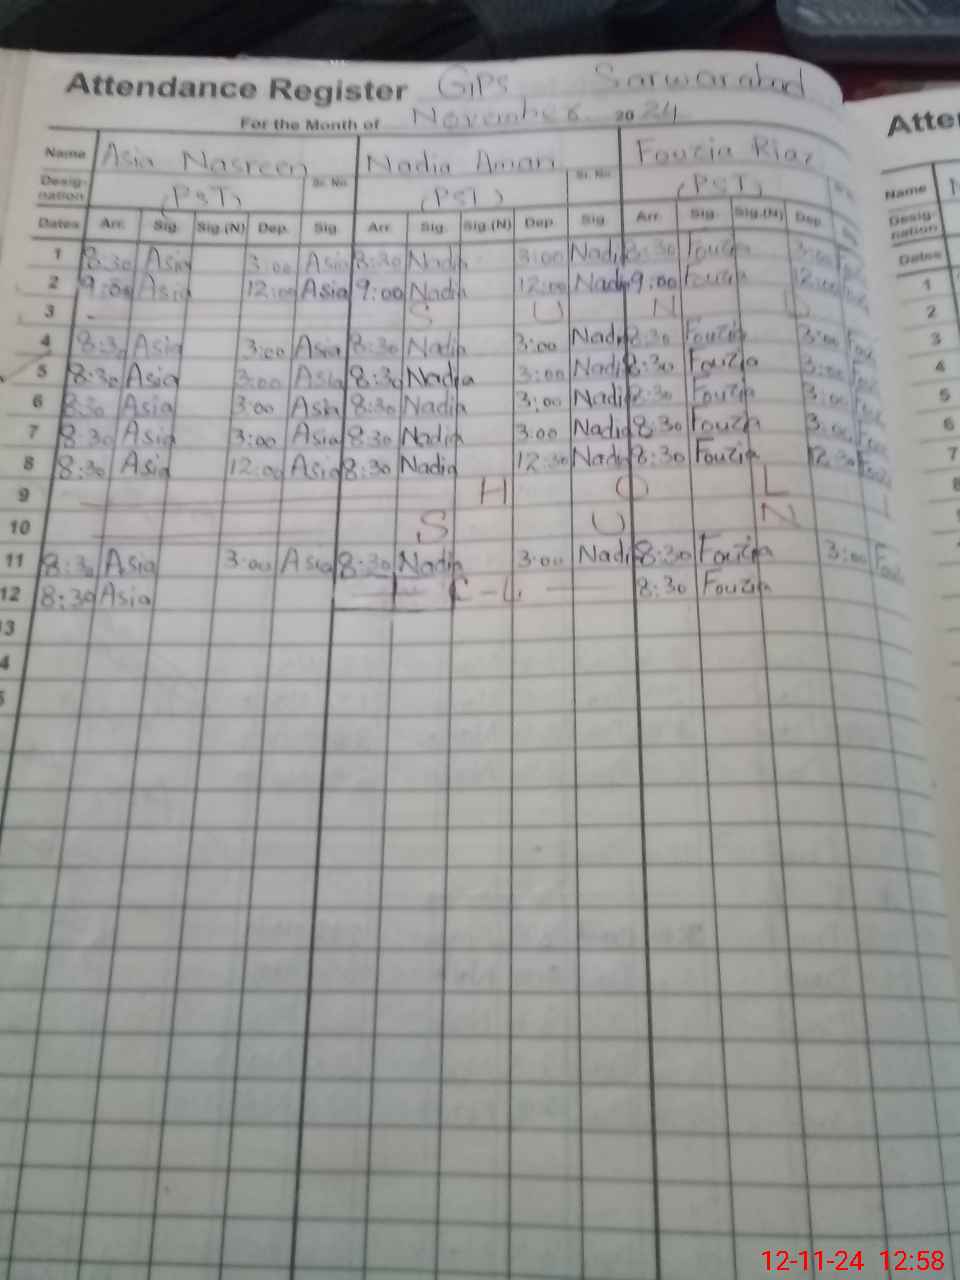 Attendance Register GPS Sarwarabad
For the Month of November 2024 Atte
Name Asia Nasreen Nadia Aman Fouzia Riaz Name
Desig-nation (PST) Sr. No. (PST) Sr. No. (PST) Desig-nation
Dates Arr. Sig. Sig.(N) Dep. Sig. Arr. Sig. Sig.(N) Dep. Sig. Arr. Sig. Sig.(N) Dep. Dates
1 8:30 Asia 3:00 Asia 8:30 Nadia 3:00 Nadia 8:30 Fouzia 3:00 1
2 9:00 Asia 12:00 Asia 9:00 Nadia 12:00 Nadia 9:00 Fouzia 12:00 2
3 S U N 3
4 8:30 Asia 3:00 Asia 8:30 Nadia 3:00 Nadia 8:30 Fouzia 3:00 Fou 4
5 8:30 Asia 3:00 Asia 8:30 Nadia 3:00 Nadia 8:30 Fouzia 3:00 5
6 8:30 Asia 3:00 Asia 8:30 Nadia 3:00 Nadia 8:30 Fouzia 3:00 6
7 8:30 Asia 3:00 Asia 8:30 Nadia 3:00 Nadia 8:30 Fouzia 3:00 7
8 8:30 Asia 12:00 Asia 8:30 Nadia 12:30 Nadia 8:30 Fouzia 12:30 8
9 H O L
10 S U N
11 8:30 Asia 3:00 Asia 8:30 Nadia 3:00 Nadi 8:30 Fouzia 3:00 Fou
12 8:30 Asia C-L 8:30 Fouzia
3
4
5
12-11-24 12:58